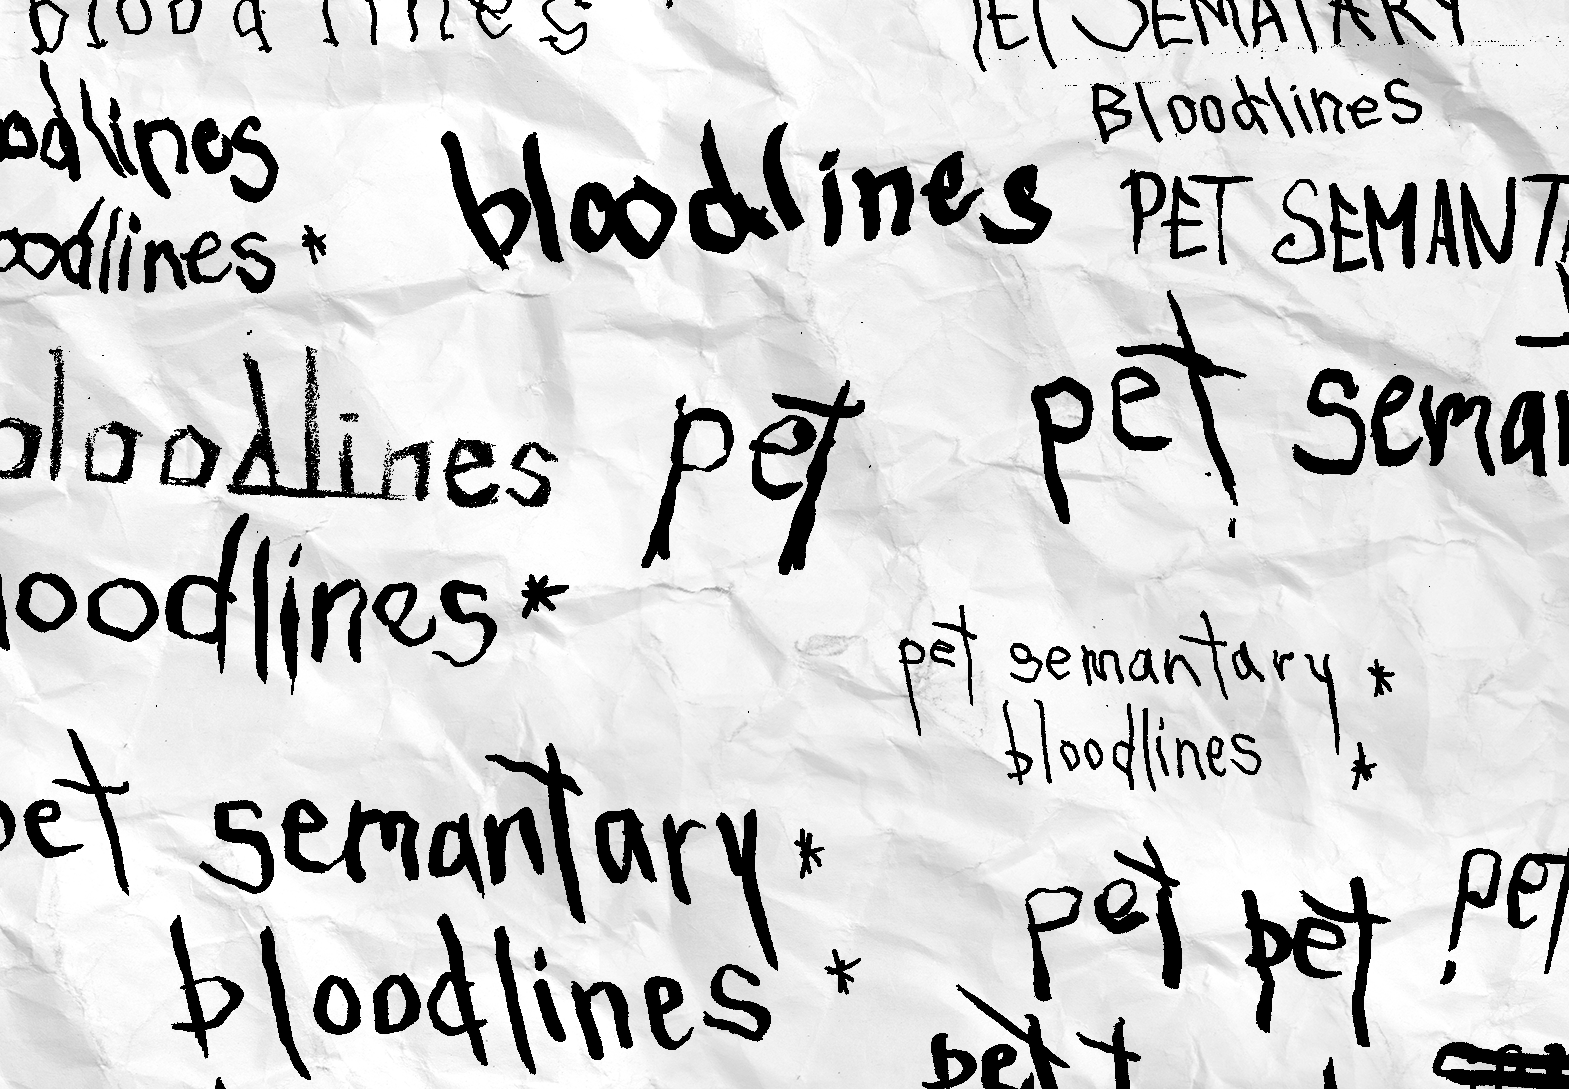 bloodlines
PET SEMATARY
Bloodlines
oodlines
bloodlines
PET SEMANT
oodlines *
pet seman
bloodlines
pet
loodlines *
pet semantary *
bloodlines *
pet semantary *
bloodlines *
pet pet pet
pet